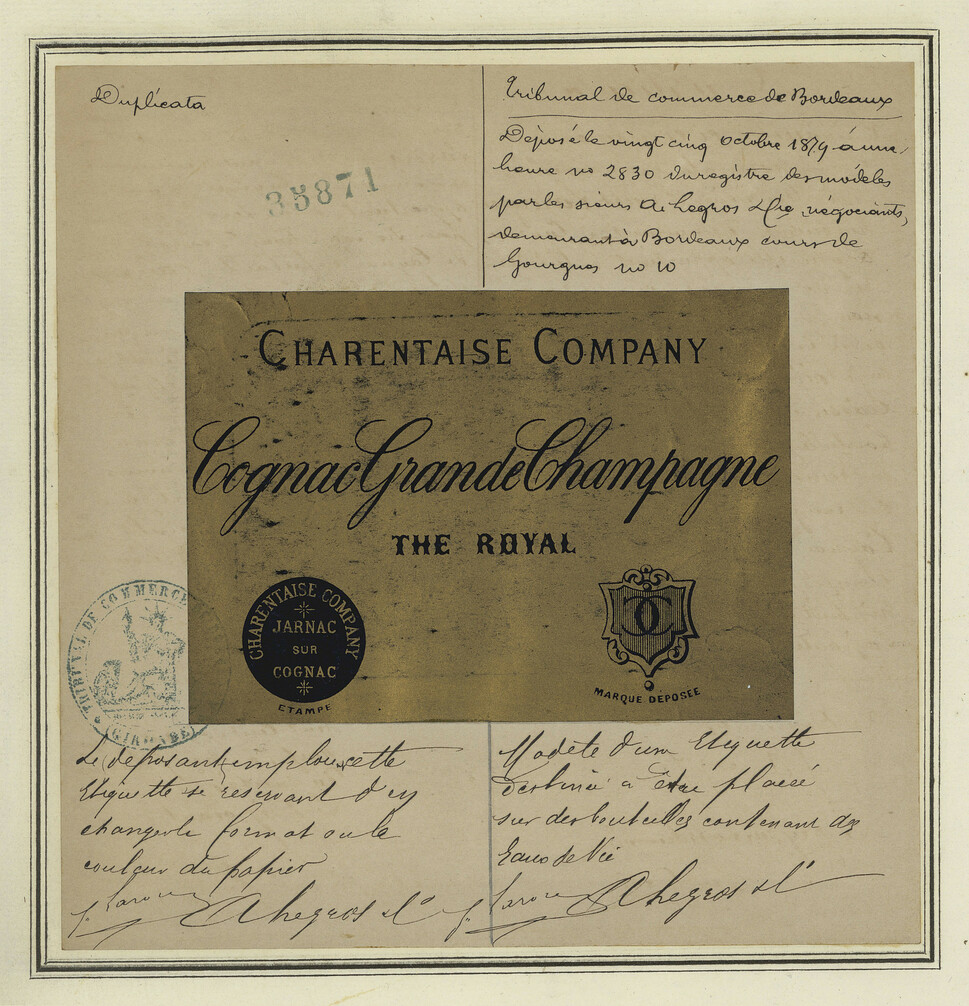 Duplicata
35871
Tribunal de commerce de Bordeaux
Déposé le vingt cinq octobre 1879 à une
heure no 2830 du registre des modèles
par les sieurs A. Legros & Cie négociants,
demeurant à Bordeaux cours de
Gourgues no 10
CHARENTAISE COMPANY
Cognac Grande Champagne
THE ROYAL
CHARENTAISE COMPANY
JARNAC
SUR
COGNAC
ETAMPE
MARQUE DÉPOSÉE
TRIBUNAL DE COMMERCE
GIRONDE
Le déposant cette
Etiquette se réservant d'en
changer le format ou le
couleur du papier
A Legros & Cie
Modèle d'une Etiquette
destinée a être placée
sur des bouteilles contenant des
Eaux de Vie
A Legros & Cie